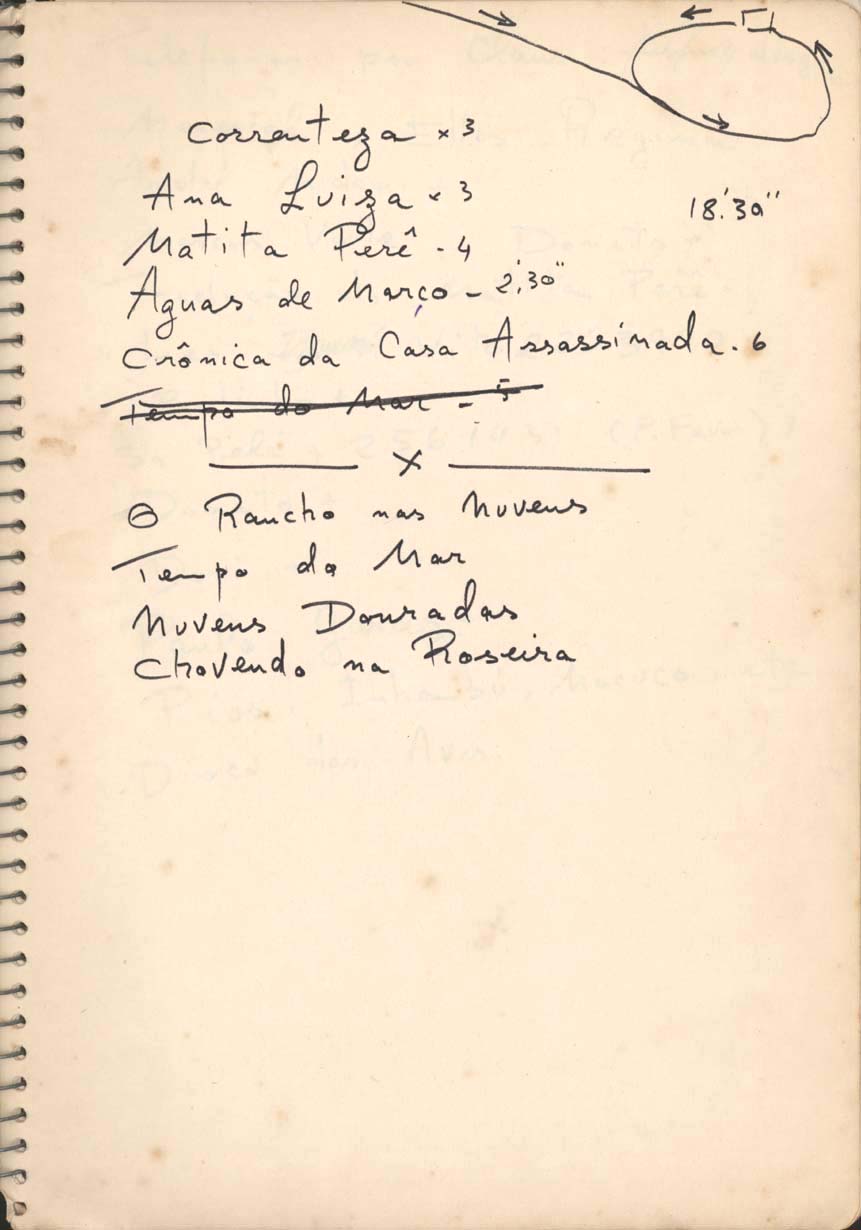 Correnteza × 3
Ana Luiza × 3
18'.30"
Matita Perê - 4
Aguas de Março - 2',30"
Crônica da Casa Assassinada. 6
Tempo do Mar - 5
x
O Rancho nas Nuvens
Tempo do Mar
Nuvens Douradas
Chovendo na Roseira